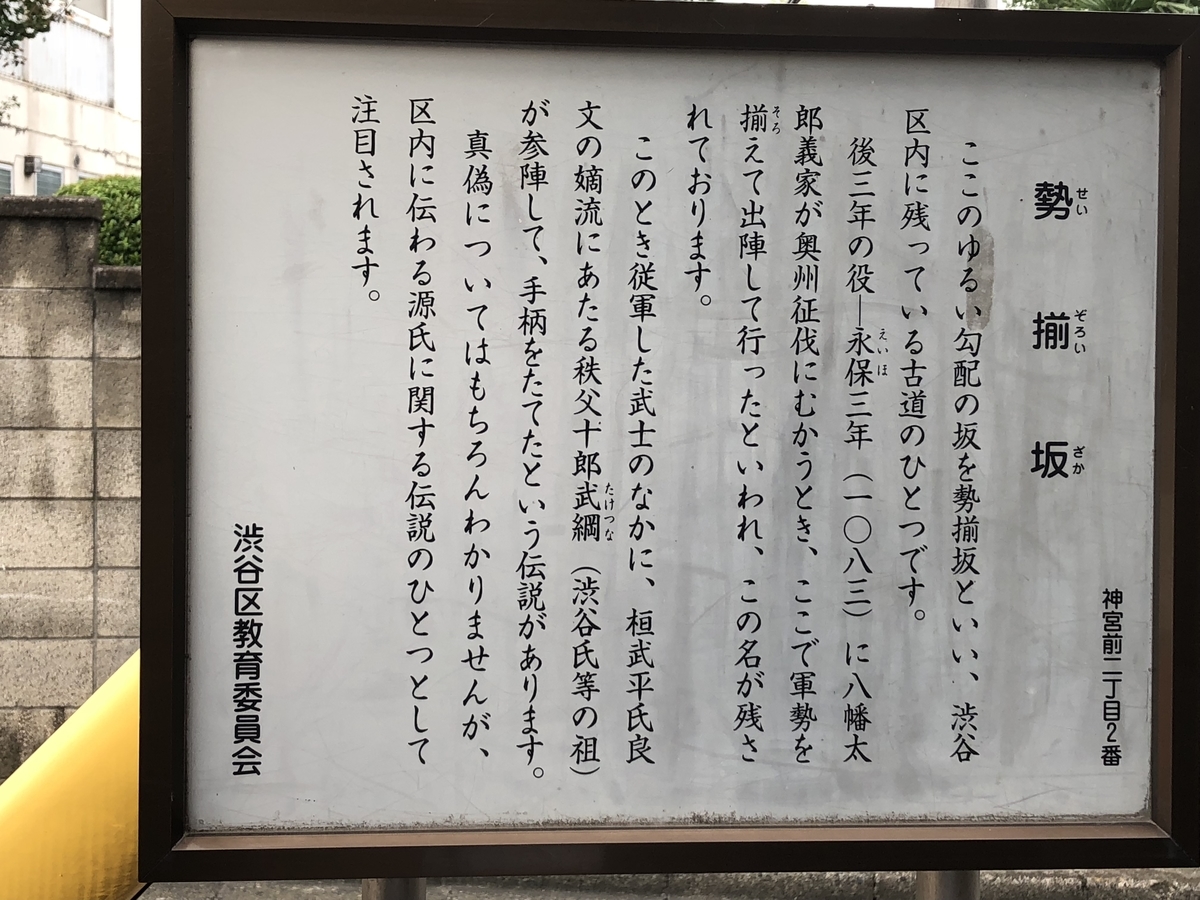 神宮前二丁目2番
勢揃坂
せいぞろいざか
ここのゆるい勾配の坂を勢揃坂といい、渋谷
区内に残っている古道のひとつです。
後三年の役―永保三年（一〇八三）に八幡太
えいほ
郎義家が奥州征伐にむかうとき、ここで軍勢を
揃えて出陣して行ったといわれ、この名が残さ
そろ
れております。
このとき従軍した武士のなかに、桓武平氏良
文の嫡流にあたる秩父十郎武綱（渋谷氏等の祖）
たけつな
が参陣して、手柄をたてたという伝説があります。
真偽についてはもちろんわかりませんが、
区内に伝わる源氏に関する伝説のひとつとして
注目されます。
渋谷区教育委員会